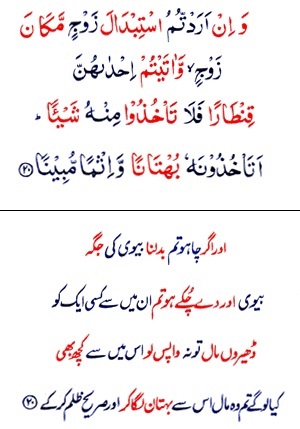 وَ اِنْ اَرَدْتُّمُ اسْتِبْدَالَ زَوْجٍ مَّكَانَ
زَوْجٍ ۙ وَّ اٰتَيْتُمْ اِحْدٰىهُنَّ
قِنْطَارًا فَلَا تَاْخُذُوْا مِنْهُ شَيْـًٔا ؕ
اَتَاْخُذُوْنَهٗ بُهْتَانًا وَّ اِثْمًا مُّبِيْنًا ﴿۲۰﴾
اور اگر چاہو تم بدلنا بیوی کی جگہ
بیوی اور دے چُکے ہو تم ان میں سے کسی ایک کو
ڈھیروں مال تو نہ واپس لو اس میں سے کچھ بھی
کیا لوگے تم وہ مال اس سے بہتان لگا کر اور صریح ظلم کر کے ﴿۲۰﴾